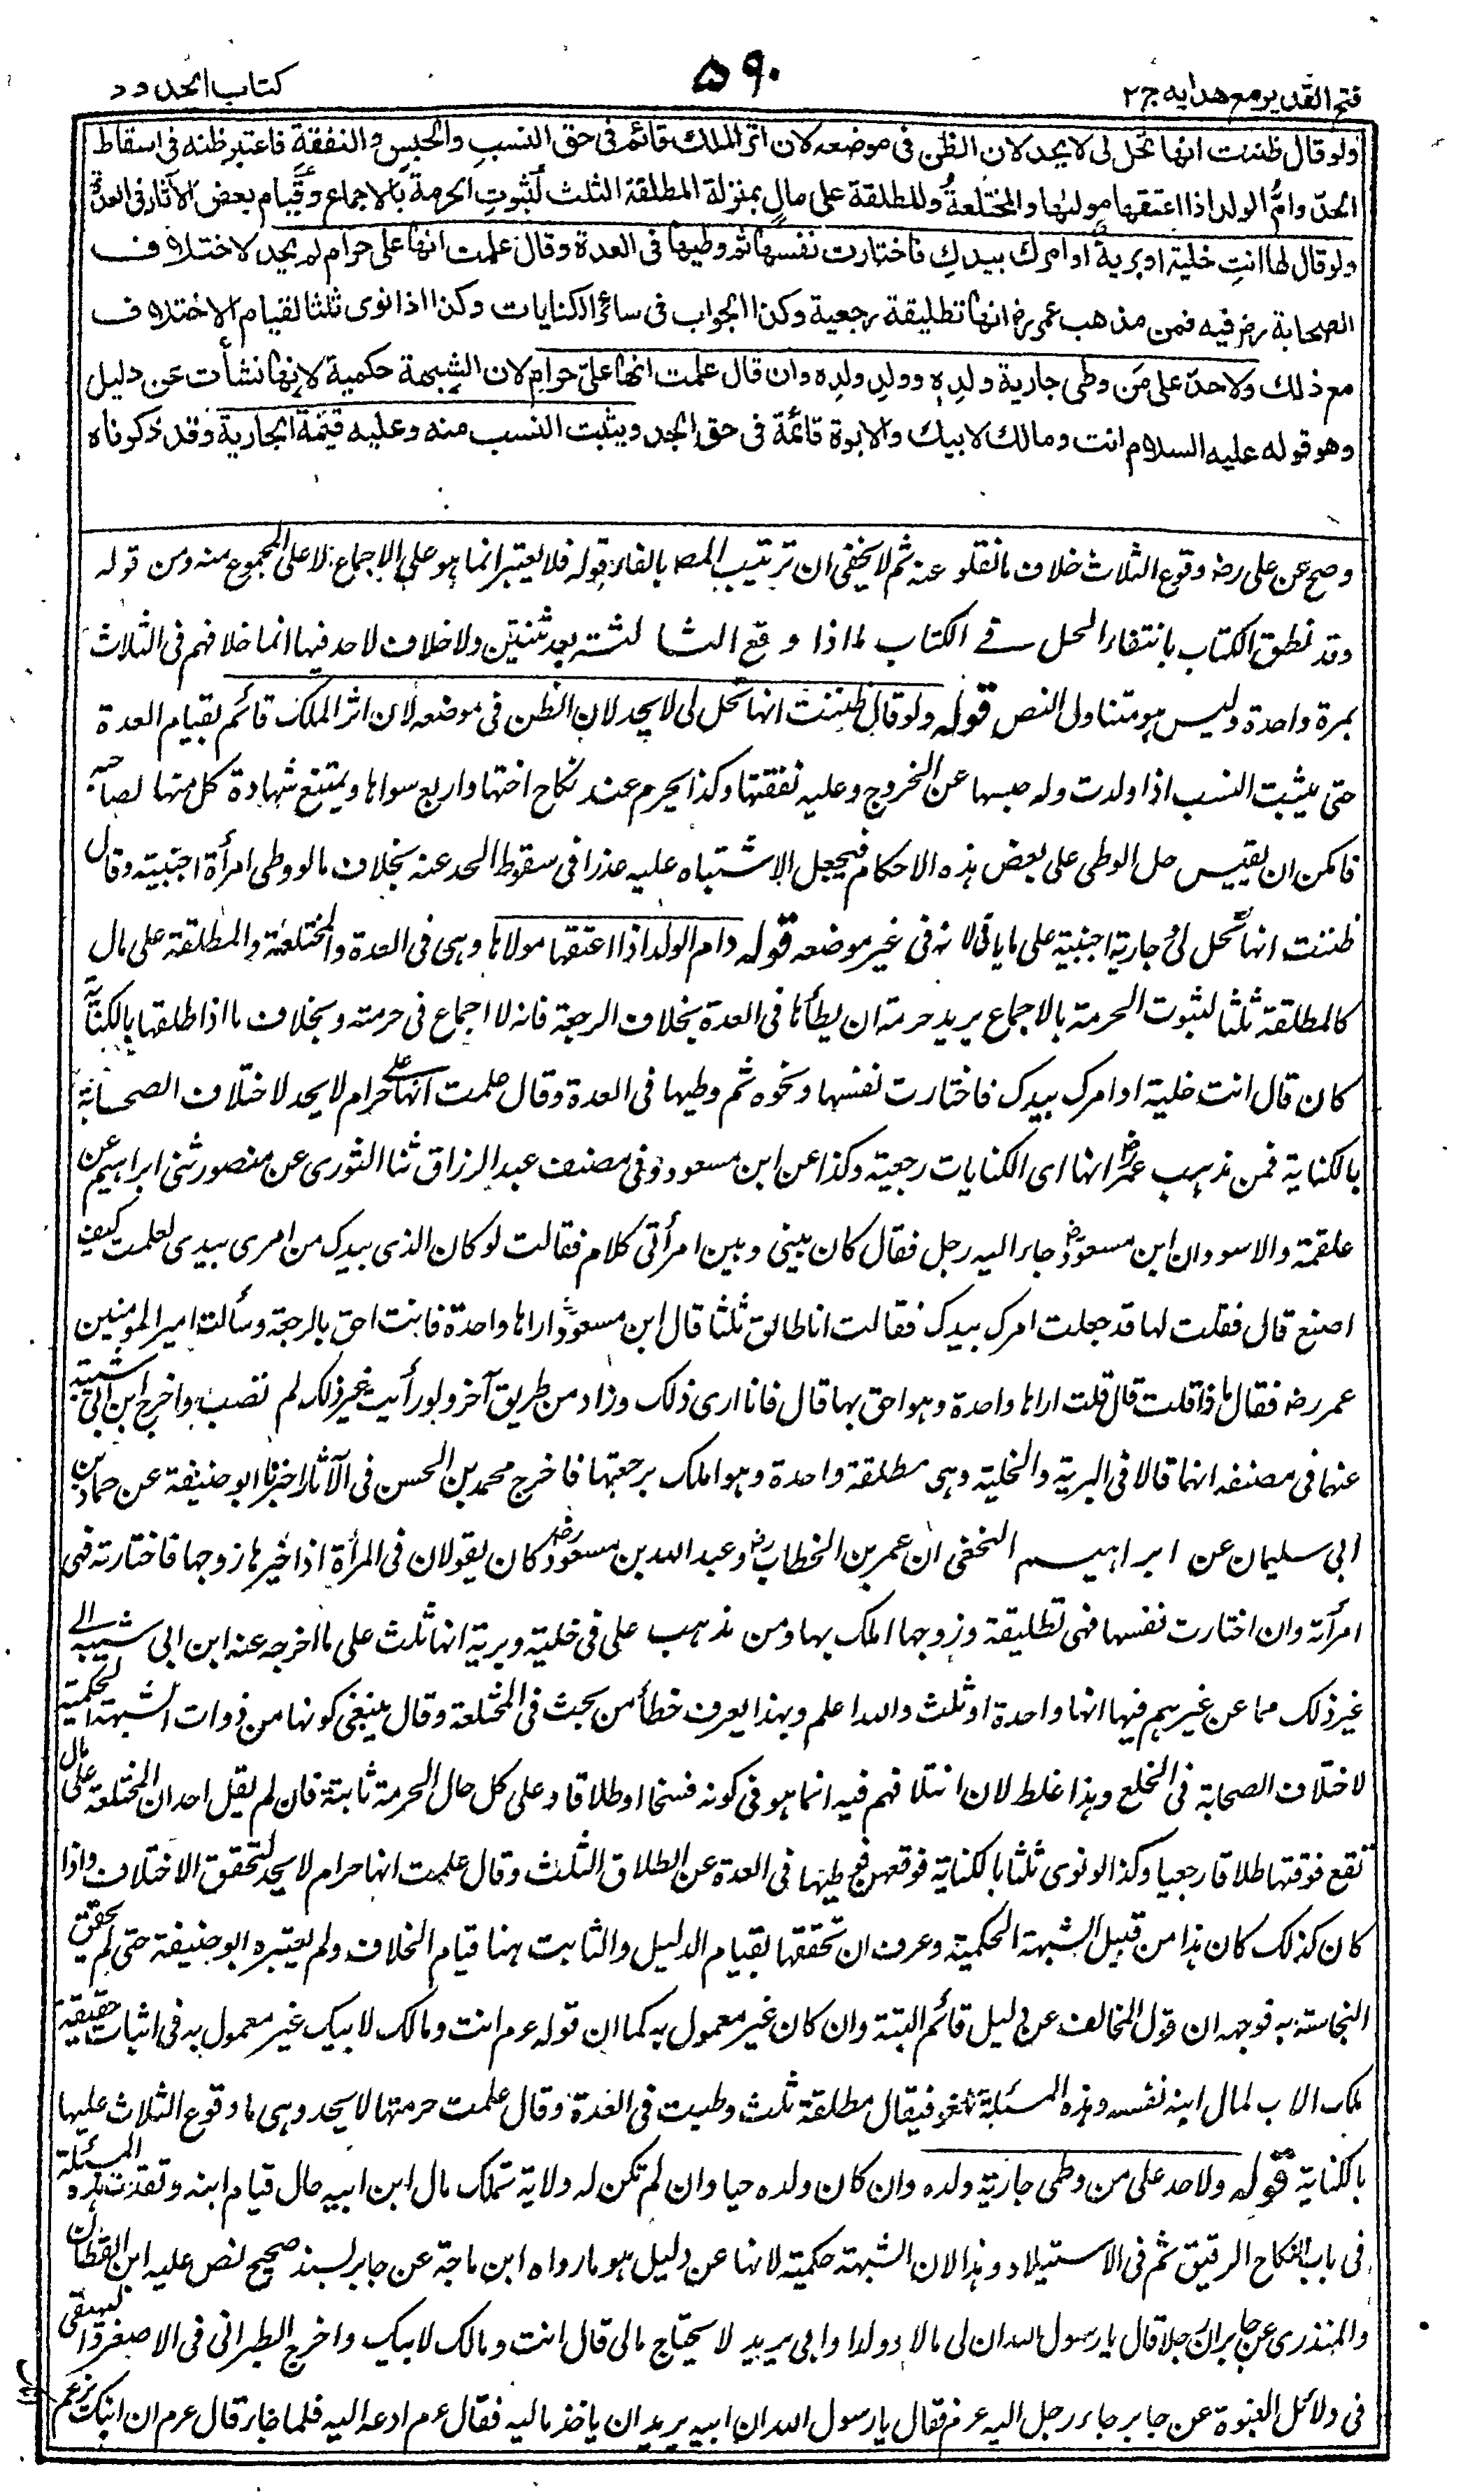 فتح القدير مع هدايه ج ٢
٥٩٠
كتاب الحدود
ولو قال ظننت انها تحل لى لا يحد لان الظن فى موضعه لان اثر الملك قائم فى حق النسب والحبس والنفقة فاعتبر ظنه فى اسقاط
الحد وام الولد اذا اعتقها مولىها والمختلعة والمطلقة على مال بمنزلة المطلقة الثلث لثبوت الحرمة بالاجماع وقيام بعض الآثار فى العدة
ولو قال لها انت خلية او برية او امرك بيدك فاختارت نفسها ثم وطيها فى العدة وقال علمت انها على حرام لم يحد لاختلاف
الصحابة رض فيه فمن مذهب عمر رض انها تطليقة رجعية وكذا الجواب فى سائر الكنايات وكذا اذا نوى ثلثا لقيام الاختلاف
مع ذلك ولا حد على من وطى جارية ولده وولد ولده وان قال علمت انها على حرام لان الشبهة حكمية لانها نشأت عن دليل
وهو قوله عليه السلام انت ومالك لابيك والابوة قائمة فى حق الجد ويثبت النسب منه وعليه قيمة الجارية وقد ذكرناه
وصح عن على رض وقوع الثلاث خلاف ما نقلو عنه ثم لا يخفى ان ترتيب المص بالفاء قوله فلا يعتبر انما هو على الاجماع لا على المجموع منه ومن قوله
وقد نطق الكتاب بانتفاء الحل فى الكتاب لما اذا وقع الثا لثة بعد ثنتين ولا خلاف لاحد فيها انما خلافهم فى الثلاث
بمرة واحدة وليس هو متناول النص قوله ولو قال ظننت انها تحل لى لا يحد لان الظن فى موضعه لان اثر الملك قائم لقيام العدة
حتى يثبت النسب اذا ولدت وله حبسها عن الخروج وعليه نفقتها وكذا يحرم عنه نكاح اختها واربع سواها ويمتنع شهادة كل منها لصاحبه
فامكن ان يقيس حل الوطى على بعض هذه الاحكام فيجعل الاشتباه عليه عذرا فى سقوط الحد عنه بخلاف ما لو وطى امرأة اجنبية وقال
ظننت انها تحل لى او جارية اجنبية على ما ياتى لانه فى غير موضعه قوله وام الولد اذا اعتقها مولاها وهى فى العدة والمختلعة والمطلقة على مال
كالمطلقة ثلثا لثبوت الحرمة بالاجماع يريد حرمته ان يطأها فى العدة بخلاف الرجعة فانه لا اجماع فى حرمته وبخلاف ما اذا طلقها بالكناية
كان قال انت خلية او امرك بيدك فاختارت نفسها ونحوه ثم وطيها فى العدة وقال علمت انها على حرام لا يحد لاختلاف الصحابة
بالكناية فمن مذهب عمر رض انها اى الكنايات رجعية وكذا عن ابن مسعود وفى مصنف عبد الرزاق ثنا الثورى عن منصور ثنى ابراهيم عن
علقمة والاسود ان ابن مسعود رض جاء اليه رجل فقال كان بينى وبين امرأتى كلام فقالت لو كان الذى بيدك من امرى بيدى لعلمت كيف
اصنع قال فقلت لها قد جعلت امرك بيدك فقالت انا طالق ثلثا قال ابن مسعود رض اراها واحدة فانت احق بالرجعة وسألت امير المومنين
عمر رض فقال ماذا قلت قال قلت اراها واحدة وهو احق بها قال فانا ارى ذلك وزاد من طريق آخر ولو رأيت غير ذلك لم تصب واخرج ابن ابى شيبة
عنهما فى مصنفه انهما قالا فى البرية والخلية وهى مطلقة واحدة وهو املك برجعتها فاخرج محمد بن الحسن فى الآثار اخبرنا ابو حنيفة عن حماد بن
ابى سليمان عن ابراهيم النخعى ان عمر بن الخطاب رض وعبد الله بن مسعود رض كان يقولان فى المرأة اذا خيرها زوجها فاختارته فهى
امرأته وان اختارت نفسها فهى تطليقة وزوجها املك بها ومن مذهب على فى خلية وبرية انها ثلث على ما اخرجه عنه ابن ابى شيبة الى
غير ذلك مما عن غيرهم فيها انها واحدة او ثلث والله اعلم وبهذا يعرف خطأ من بحث فى المختلعة وقال ينبغى كونها من ذوات الشبهة الحكمية
لاختلاف الصحابة فى الخلع وهذا غلط لان اختلافهم فيه انما هو فى كونه فسخا او طلاقا وعلى كل حال الحرمة ثابتة فان لم يقل احد ان المختلعة على مال
تقع فرقتها طلاقا رجعيا وكذا لو نوى ثلثا بالكناية فوقعن فوطيها فى العدة عن الطلاق الثلث وقال علمت انها حرام لا يحد لتحقق الاختلاف واذا
كان كذلك كان هذا من قبيل الشبهة الحكمية وعرف ان تحققها بقيام الدليل والثابت هنا قيام الخلاف ولم يعتبره ابو حنيفة حتى لم يحقق
النجاسة به فوجهه ان قول المخالف عن دليل قائم البتة وان كان غير معمول به كما ان قوله عم انت ومالك لابيك غير معمول به فى اثبات حقيقة
ملك الاب لمال ابنه نفسه وهذه المسئلة فيقال مطلقة ثلث وطيت فى العدة وقال علمت حرمتها لا يحد وهى ما وقوع الثلاث عليها
بالكناية قوله ولا حد على من وطى جارية ولده وان كان ولده حيا وان لم تكن له ولاية تملك مال ابن ابيه حال قيام ابنه وتقدمت هذه المسئلة
فى باب النكاح الرقيق ثم فى الاستيلاد وهذا لان الشبهة حكمية لانها عن دليل هو ما رواه ابن ماجة عن جابر بسند صحيح نص عليه ابن القطان
والمنذرى عن جابر ان رجلا قال يا رسول الله ان لى مالا وولدا وابى يريد لا يحتاج مالى قال انت ومالك لابيك واخرج الطبرانى فى الاصغر والبيهقى
فى دلائل النبوة عن جابر جاء رجل اليه عم فقال يا رسول الله ان ابيه يريد ان ياخذ ماليه فقال عم ادعه اليه فلما جاء قال عم ان ابنك يزعم